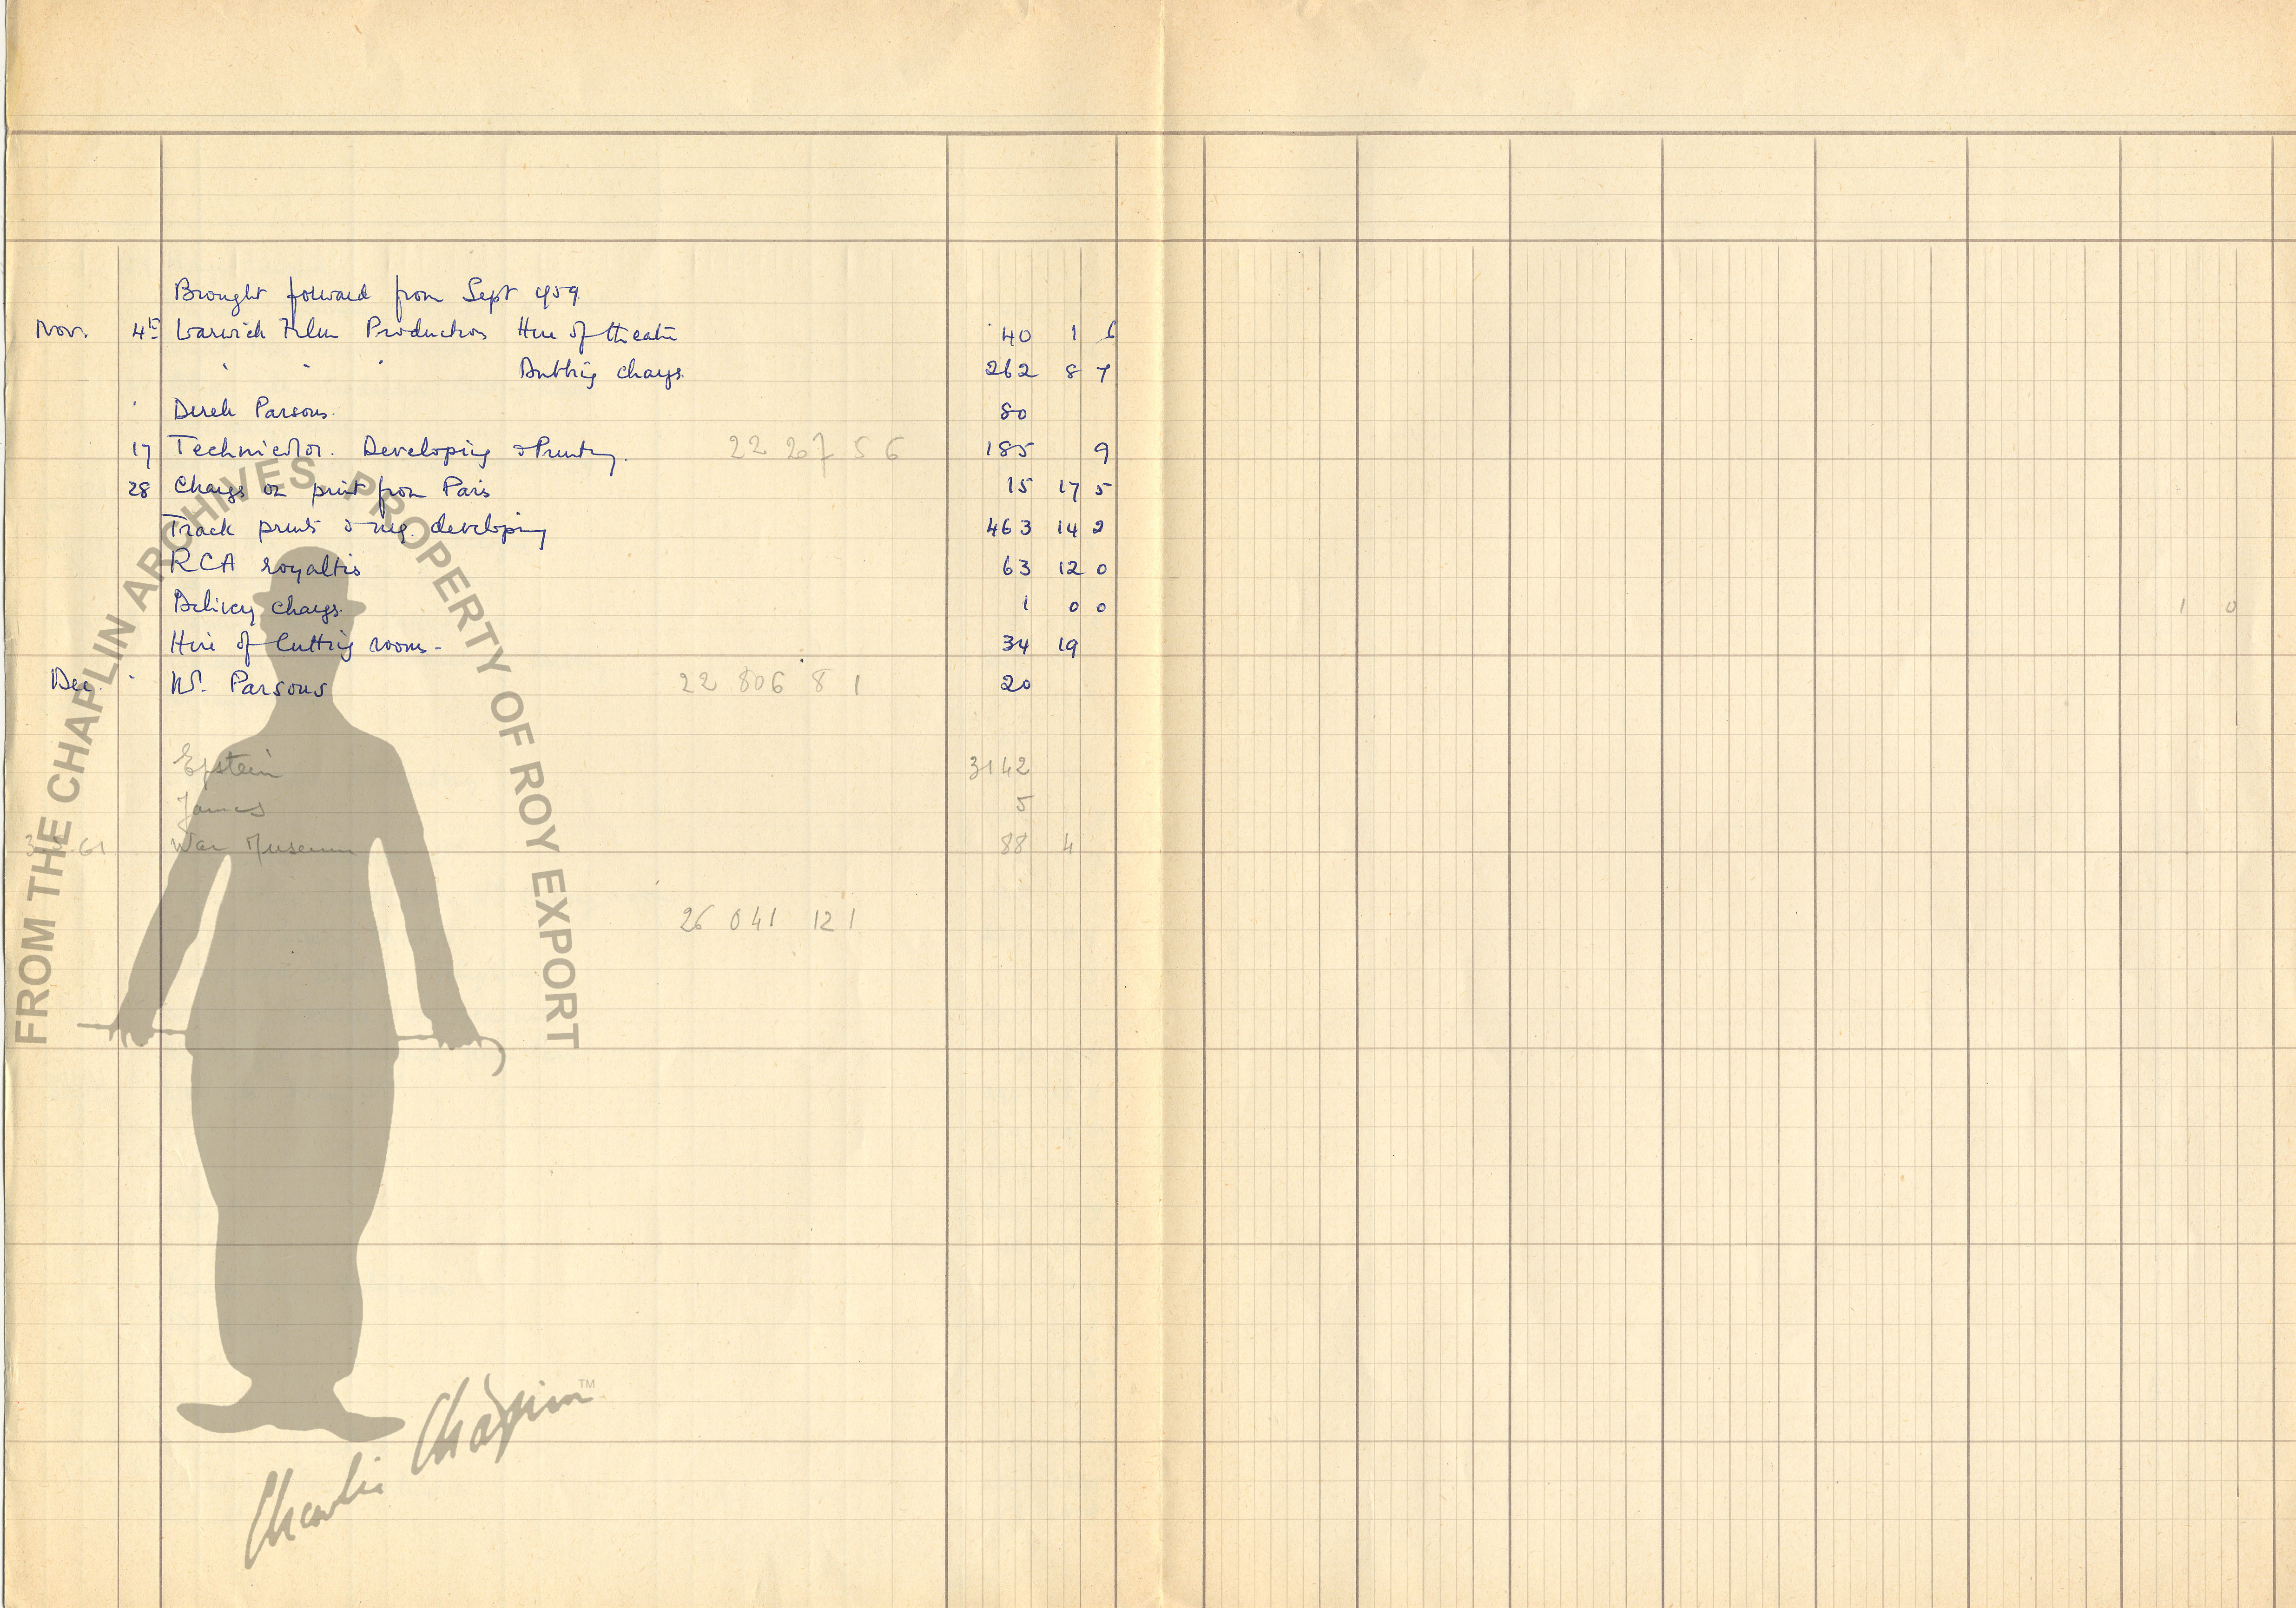 Brought forward from Sept 1959
Nov. 4th Warwick Film Productions Hire of theatre 40 1 6
" " " Dubbing charges 262 8 7
" Derek Parsons. 80
17 Technicolor. Developing & Printing. 22 207 5 6 185 9
28 Charges on print from Paris 15 17 5
Track prints & neg. developing 463 14 2
RCA royalties 63 12 0
Delivery charges. 1 0 0 1 0
Hire of Cutting rooms - 34 19
Dec. " Mr. Parsons 22 806 8 1 20
Epstein 3142
James 5
61 War Museum 88 4
26 041 12 1
FROM THE CHAPLIN ARCHIVES, PROPERTY OF ROY EXPORT
Charlie Chaplin TM